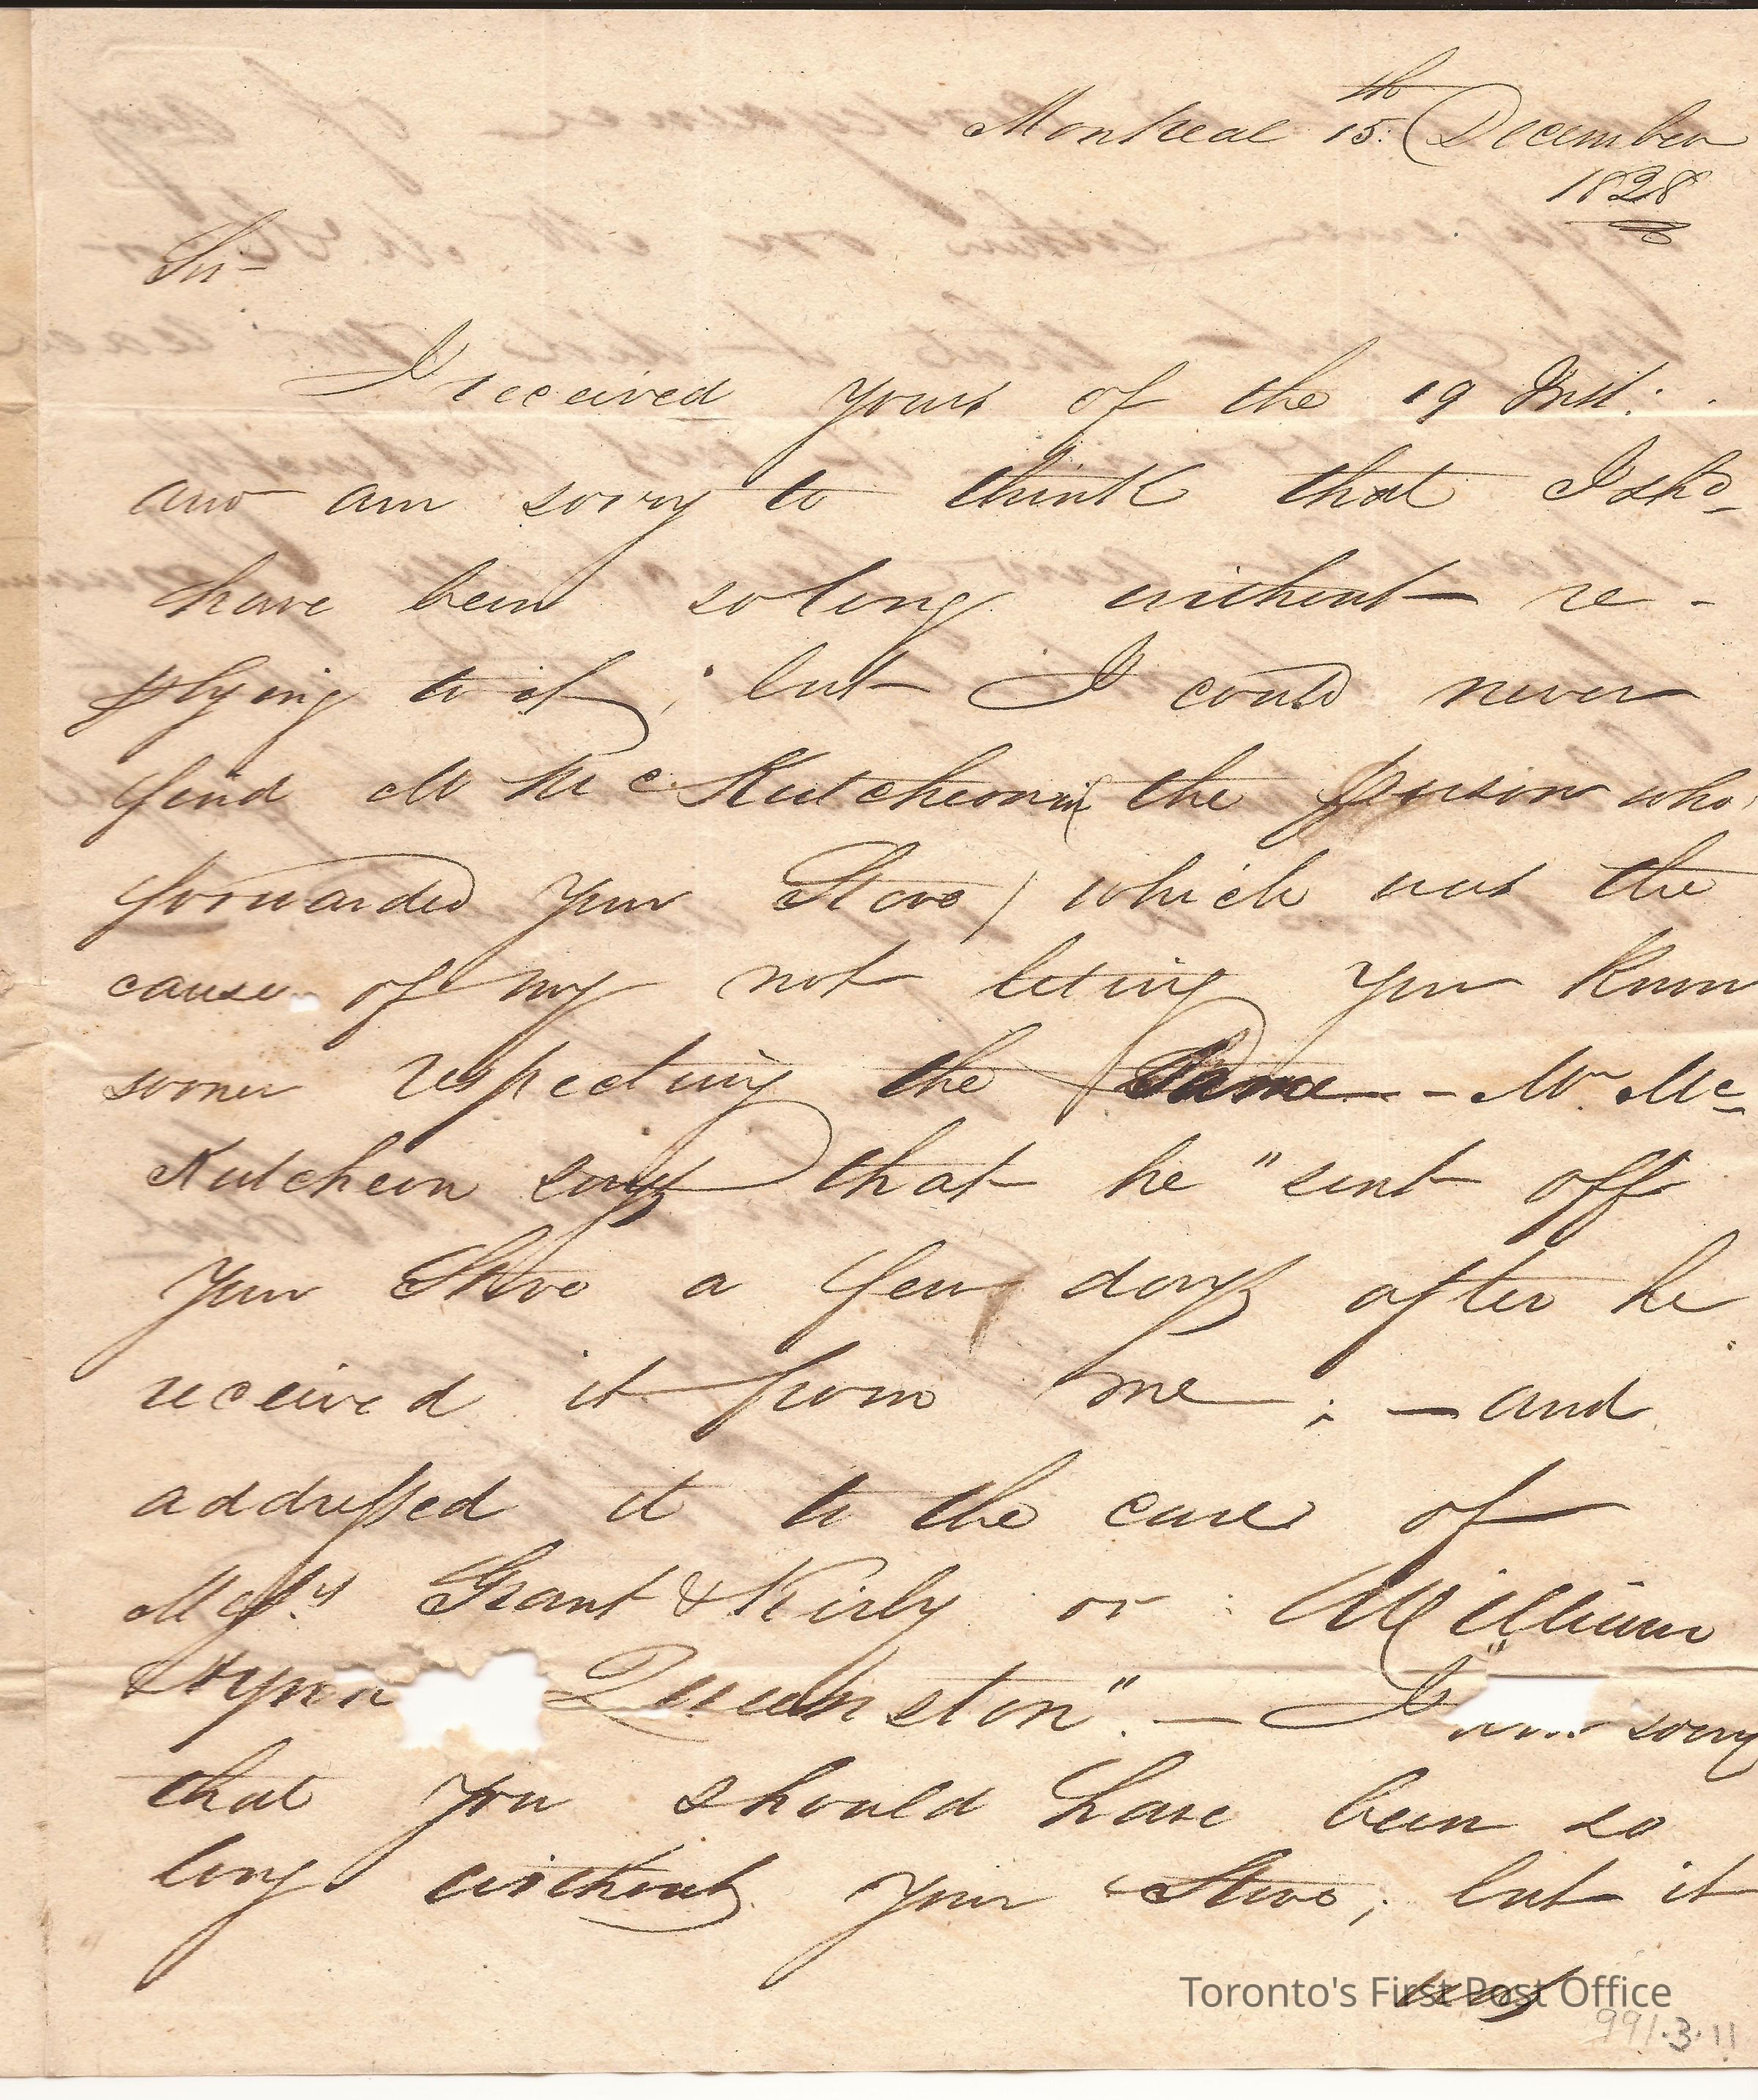 Montreal 15th. December
1828
Sir-
I received yours of the 19 Inst:
and am sorry to think that I shd
have been so long without re-
plying to it; but I could never
find Mr McKutcheon (the person who
forwarded your Stove) which was the
cause of my not leting you know
sooner respecting the Same - Mr. Mc
Kutcheon says that he "sent off
your Stove a few days after he
received it from me; - and
addressed it to the care of
Messrs Grant & Kirby or William
Queenston". - I am sorry
that you should have been so
long without your Stove; but it
was
Toronto's First Post Office
991.3.11